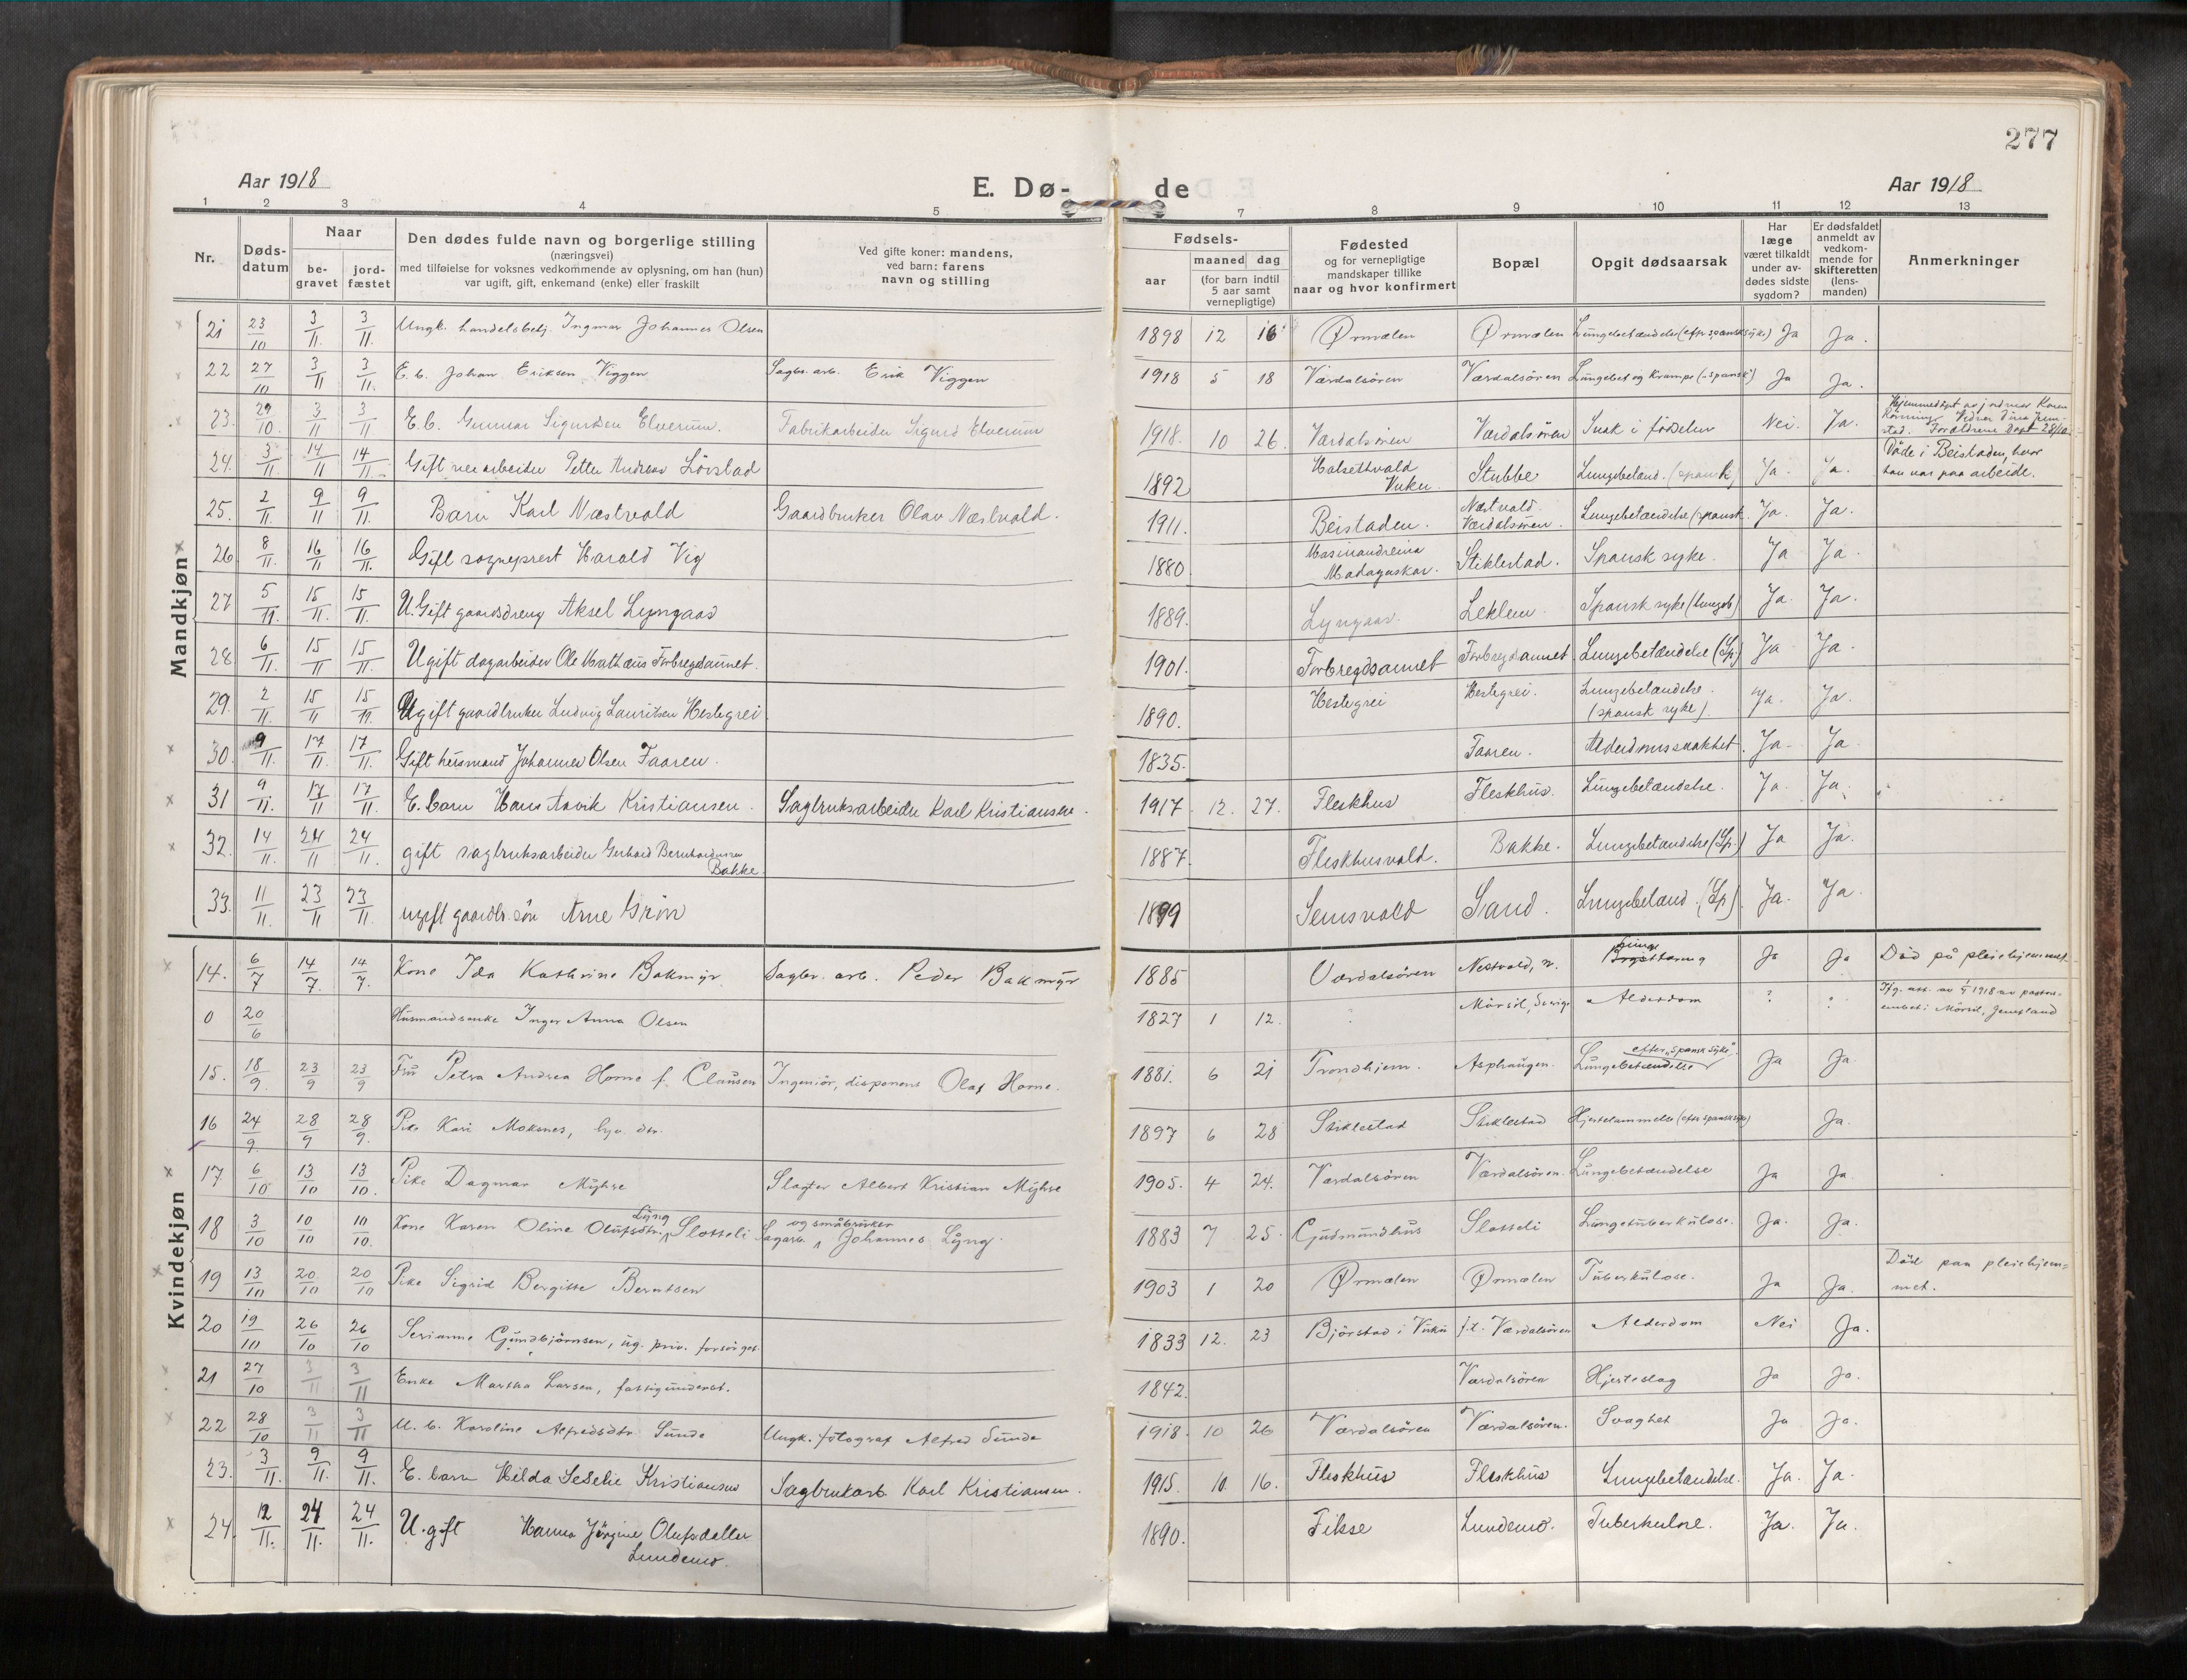 277
Aar 1918
E. Dø-
de
Aar 1918
1 2 3 4 5 7 8 9 10 11 12 13
Nr.
Døds-
datum
Naar
be-
gravet
jord-
fæstet
Den dødes fulde navn og borgerlige stilling
(næringsvei)
med tilføielse for voksnes vedkommende av oplysning, om han (hun)
var ugift, gift, enkemand (enke) eller fraskilt
Ved gifte koner: mandens,
ved barn: farens
navn og stilling
Fødsels-
aar
maaned dag
(for barn indtil
5 aar samt
vernepligtige)
Fødested
og for vernepligtige
mandskaper tillike
naar og hvor konfirmert
Bopæl
Opgit dødsaarsak
Har
læge
været tilkaldt
under av-
dødes sidste
sygdom?
Er dødsfaldet
anmeldt av
vedkom-
mende for
skifteretten
(lens-
manden)
Anmerkninger
Mandkjøn
21 23/10 3/11 3/11. Ungk. handelsbetj. Ingmar Johannes Olsen 1898 12 16 Ørmælen Ørmælen Lungebetændelse (efter spansk syke) Ja Ja.
22 27/10 3/11 3/11. E. b. Johan Eriksen Viggen Sagbr. arb. Erik Viggen 1918 5 18 Værdalsören Værdalsören Lungebet og Krampe („spansk") Ja Ja.
23. 29/10. 3/11 3/11 E. b. Gunnar Sigurdsen Elverum. Fabrikarbeider Sigurd Elverum 1918. 10 26. Værdalsören Værdalsören Svak i födselen Nei. Ja. Hjemmedöpt av jordmor Karen
Vidner Dina
Forældrene Döpt 28/10
24. 3/11 14/11 14/11. Gift veiarbeider Petter Andreas Lörstad 1892 Halsetvald
Vuku. Stubbe Lungebetænd. (spansk) Ja. Ja. Døde i Beistaden, hvor
han var paa arbeide.
25. 2/11. 9/11 9/11. Barn Karl Næstvold Gaardbruker Olav Næstvold. 1911. Beistaden. Næstvold.
Værdalsören. Lungebetændelse (spansk. Ja. Ja.
26 8/11. 16/11 16/11. Gift sogneprest Harald Vig 1880 Masinandreina
Madagaskar. Stiklestad. Spansk syke. Ja Ja.
27 5/11. 15/11. 15/11. U. Gift gaardsdreng Aksel Lyngaas 1889. Lyngaas. Leklem. Spansk syke (lungeb) Ja. Ja.
28 6/11. 15/11 15/11. Ugift dagarbeider Ole Mathæus Forbregdsaunet. 1901. Forbregdsaunet Forbregdsaunet Lungebetændelse (Sp.) Ja Ja.
29. 2/11. 15/11 15/11. Ugift gaardbruker Ludvig Lauritsen Hestegrei 1890. Hestegrei Hestegrei. Lungebetændelse.
(spansk syke). Ja. Ja.
30. 9/11. 17/11. 17/11. Gift husmand Johannes Olsen Faaren. 1835. Faaren. Alderdomssvakhet. Ja. Ja.
31 9/11. 17/11 17/11. E. barn Hans Arvik Kristiansen. Sagbruksarbeider Karl Kristiansen. 1917 12. 27. Fleskhus Fleskhus. Lungebetændelse. Ja. Ja.
32. 14/11. 24/11 24/11. gift sagbruksarbeider Gerhard Bernhardussen
Bakke. 1887. Fleskhusvald. Bakke. Lungebetændelse (Sp.) Ja Ja.
33. 11/11. 23/11 23/11. ugift gaardbr. sön Arne Grön 1899 Semsvald Sand. Lungebetænd. (Sp). Ja. Ja.
Kvindekjøn
14. 6/7 14/7. 14/7. Kone Ida Kathrine Bakmyr. Sagbr. arb. Peder Bakmyr 1885 Værdalsören Nestvold, Lunge
tæring Ja Ja Död på pleiehjemmet
0 20/6 Husmandsenke Inger Anna Olsen 1827 1 12. Mörsil, Sverige Alderdom ? ? Ifg. att. av 1/7 1918 av pastors-
embet i Mörsil, Jemtland
15. 18/9. 23/9 23/9 Fru Petra Andrea Horne f. Clausen Ingeniör, disponent Olaf Horne. 1881. 6 21 Trondhjem. Asphaugen. efter „spansk syke".
Lungebetændelse Ja Ja.
16 24/9. 28/9 28/9. Pike Kari Moknes, 1897 6 28 Stiklestad Stiklestad Hjertelammelse (efter spansk syke) Ja.
17. 6/10 13/10 13/10. Pike Dagmar Myhre Slagter Albert Kristian Myhre 1905. 4 24. Værdalsören Værdalsören. Lungebetændelse Ja Ja.
18 3/10 10/10 10/10. Lyng
Kone Karen Oline Olufsdtr. Slotteli og småbruker
Sagarb. Johannes Lyng. 1883 7 25. Gudmundhus Slotteli Lungetuberkulose. Ja. Ja.
19 13/10 20/10 20/10 Pike Sigrid Bergitte Berntsen 1903 1 20 Ørmælen Ørmælen Tuberkulose. Ja Ja. Död paa pleiehjem-
met.
20 19/10 26/10 26/10 Serianna Gundbjörnsen, ug. priv. forsörget. 1833 12. 23 Björstad i Vuku f.t. Værdalsören Alderdom Nei Ja.
21 27/10 3/11 3/11 Enke Martha Larsen, fattigunderst. 1842. Værdalsören Hjerteslag Ja Ja.
22 28/10 3/11 3/11 U. b. Karoline Alfredsdtr. Sunde Ungk. fotograf Alfred Sunde 1918. 10 26 Værdalsören Værdalsören. Svaghet Ja Ja.
23. 3/11. 9/11. 9/11. E. barn Hilda Kristiansen Sagbrukarb. Karl Kristiansen. 1915. 10. 16. Fleskhus Fleskhus Lungebetændelse. Ja. Ja.
24. 12/11. 24/11. 24/11. U. gift Hanna Jörgine Olufsdatter
Lundemo. 1890. Fikse Lundemo. Tuberkulose. Ja. Ja.